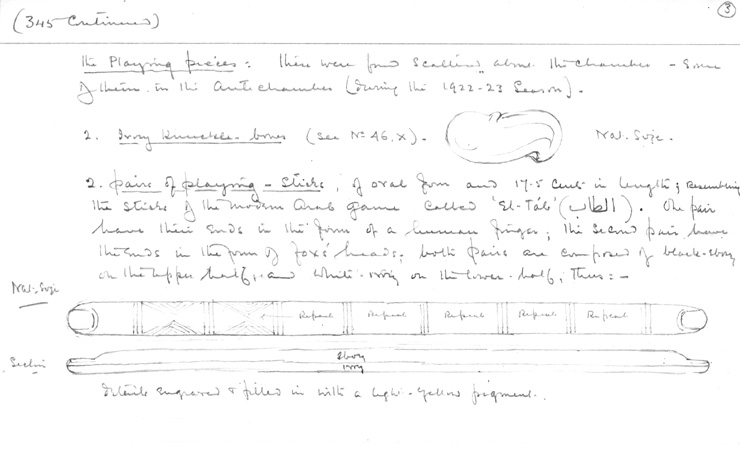 (345 Continued)
3
The Playing pieces: These were found scattered about the chamber - Some
of them in the Antechamber (during the 1922-23 Season).
2. Ivory Knuckle-bones (See No 46, x).
Nat. Size.
2. pairs of playing-sticks, of oval form and 17.5 cent. in length; resembling
the sticks of the modern Arab game called 'El-Tâb' (الطاب). One pair
have their ends in the form of a human finger; the second pair have
the ends in the form of foxs' heads; both pairs are composed of black-ebony
on the upper half, and white-ivory on the lower-half, thus:-
Nat. Size
Repeat Repeat Repeat Repeat Repeat
Section
Ebony
ivory
Details engraved & filled in with a light-yellow pigment.